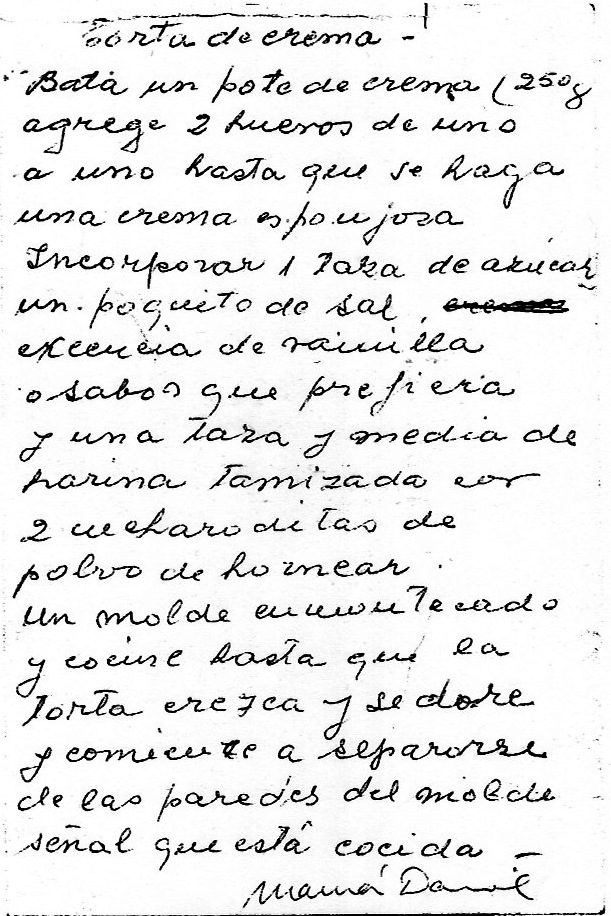 Torta de crema -
Bata un pote de crema (250g
agrege 2 huevos de uno
a uno hasta que se haga
una crema espoujosa
Incorporar 1 taza de azúcar
un poquito de sal,
excencia de vainilla
o sabor que prefiera
y una taza y media de
harina tamizada con
2 cucharaditas de
polvo de hornear.
Un molde enmantecado
y cocine hasta que la
torta crezca y se dore
y comience a separarse
de las paredes del molde
señal que está cocida -
Mamá